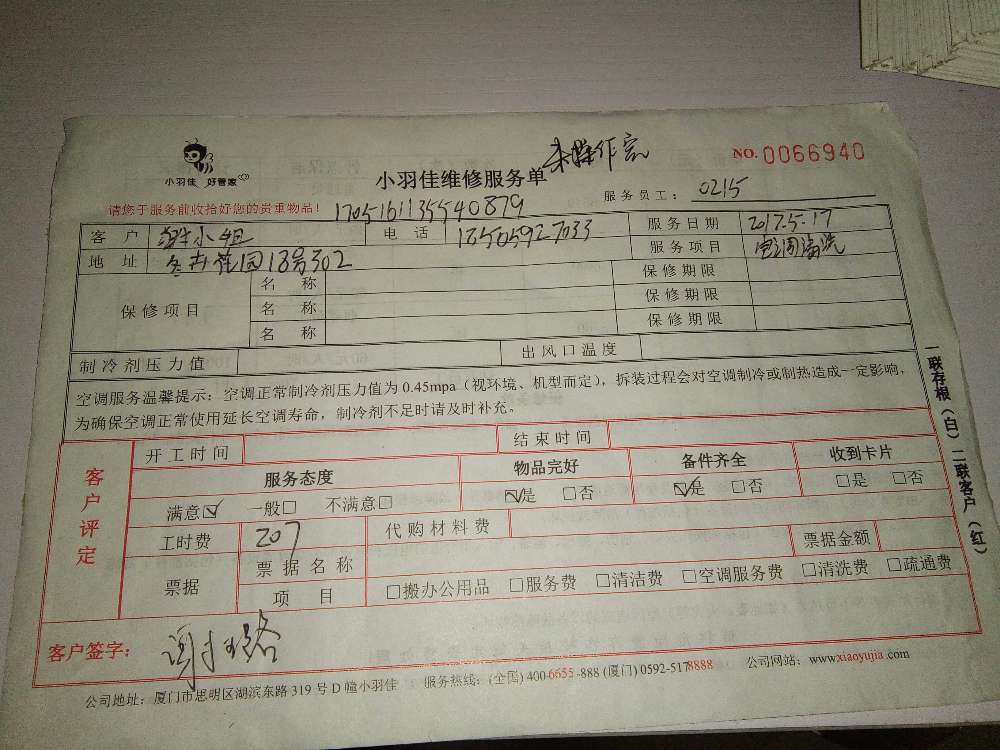 小羽佳 好管家
小羽佳维修服务单
未操作完
NO.0066940
请您于服务前收拾好您的贵重物品!
1705161135540879
服务员工: 0215
客户 小姐 电话 18505927033 服务日期 2017.5.17
地址 花园18号302 服务项目 空调清洗
保修项目 名称 保修期限
名称 保修期限
名称 保修期限
制冷剂压力值 出风口温度
空调服务温馨提示: 空调正常制冷剂压力值为0.45mpa(视环境、机型而定),拆装过程会对空调制冷或制热造成一定影响,
为确保空调正常使用延长空调寿命,制冷剂不足时请及时补充。
客户评定
开工时间 结束时间
服务态度 物品完好 备件齐全 收到卡片
满意☑ 一般□ 不满意□ ☑是 □否 ☑是 □否 □是 □否
工时费 207 代购材料费
票据 票据名称 票据金额
项目 □搬办公用品 □服务费 □清洁费 □空调服务费 □清洗费 □疏通费
客户签字:
一联存根(白) 二联客户(红)
公司地址: 厦门市思明区湖滨东路319号D幢小羽佳 服务热线: (全国) 400-6655-888 (厦门) 0592-5178888 公司网站: www.xiaoyujia.com